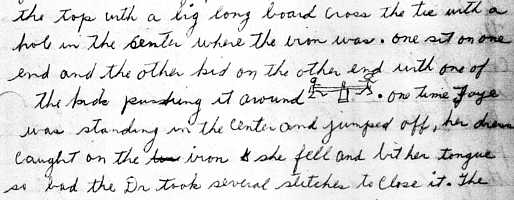 the top with a big long board cross the tie with a
hole in the senter where the iron was. one sit on one
end and the other kid on the other end with one of
the kids pushing it around . one time Faye
was standing in the center and jumped off, her dress
caught on the iron & she fell and bit her tongue
so bad the Dr took several stitches to close it. The